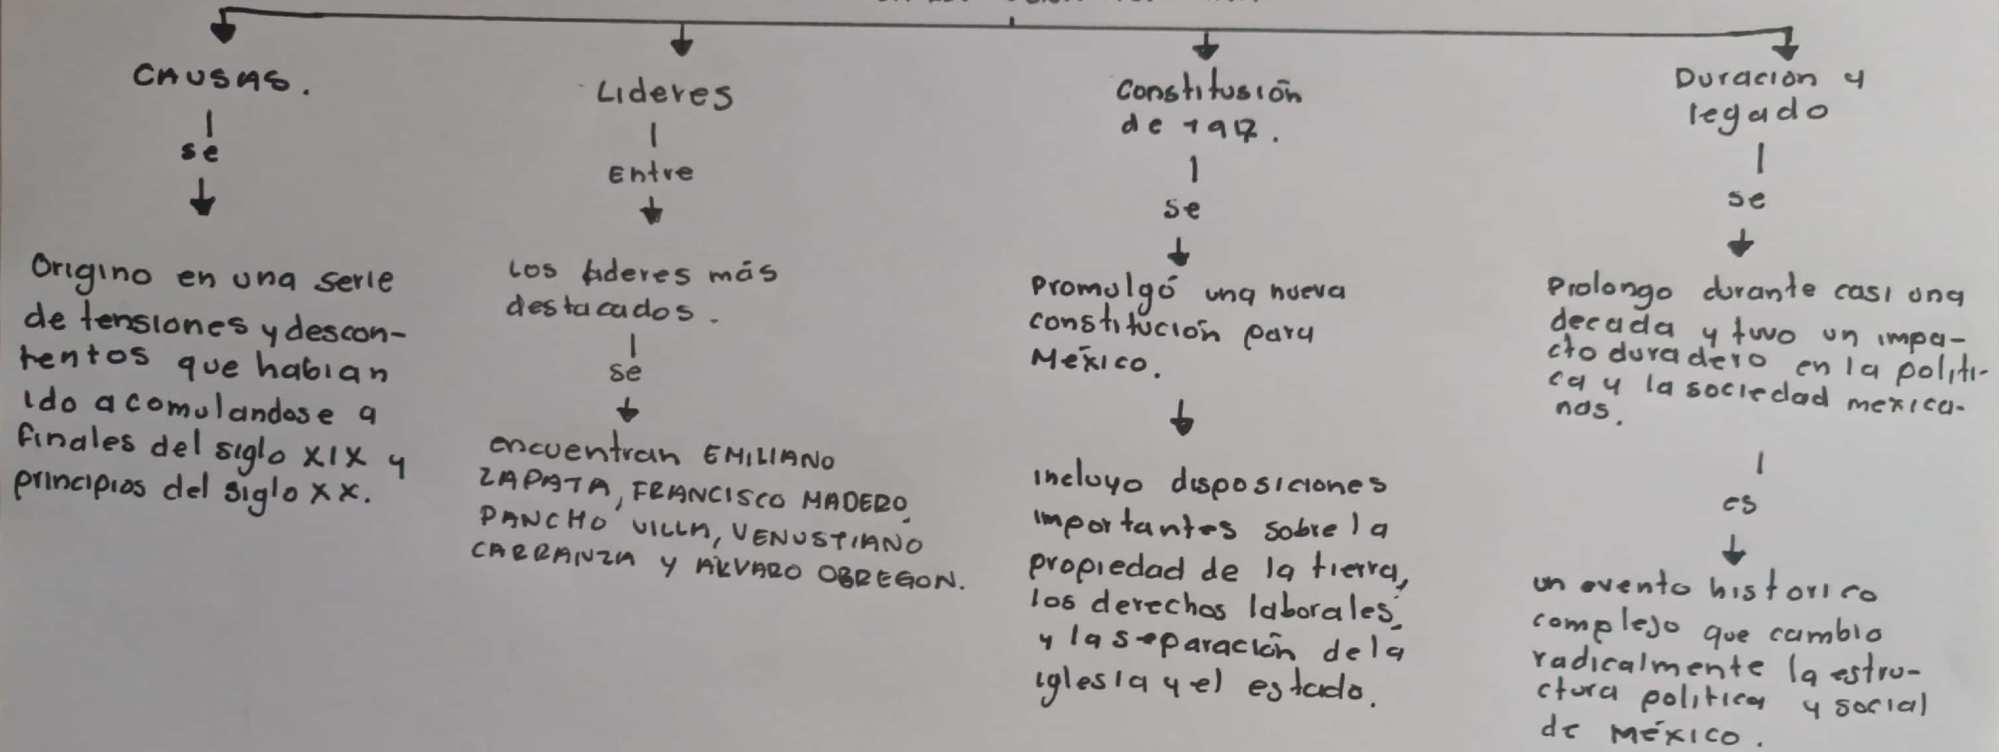 CAUSAS.
se
Origino en una serie
de tensiones y descon-
tentos que habian
ido acomulandose a
finales del siglo XIX y
principios del siglo XX.
Lideres
Entre
Los lideres más
destacados.
se
encuentran EMILIANO
ZAPATA, FRANCISCO MADERO,
PANCHO VILLA, VENUSTIANO
CARRANZA Y ALVARO OBREGON.
Constitusión
de 1917.
se
Promulgó una nueva
constitución para
México.
incluyo disposiciones
importantes sobre la
propiedad de la tierra,
los derechos laborales,
y la separación de la
iglesia y el estado.
Duracion y
legado
se
Prolongo durante casi una
decada y tuvo un impa-
cto duradero en la politi-
ca y la sociedad mexica-
nas.
es
un evento historico
complejo que cambio
radicalmente la estru-
ctura politica y social
de México.